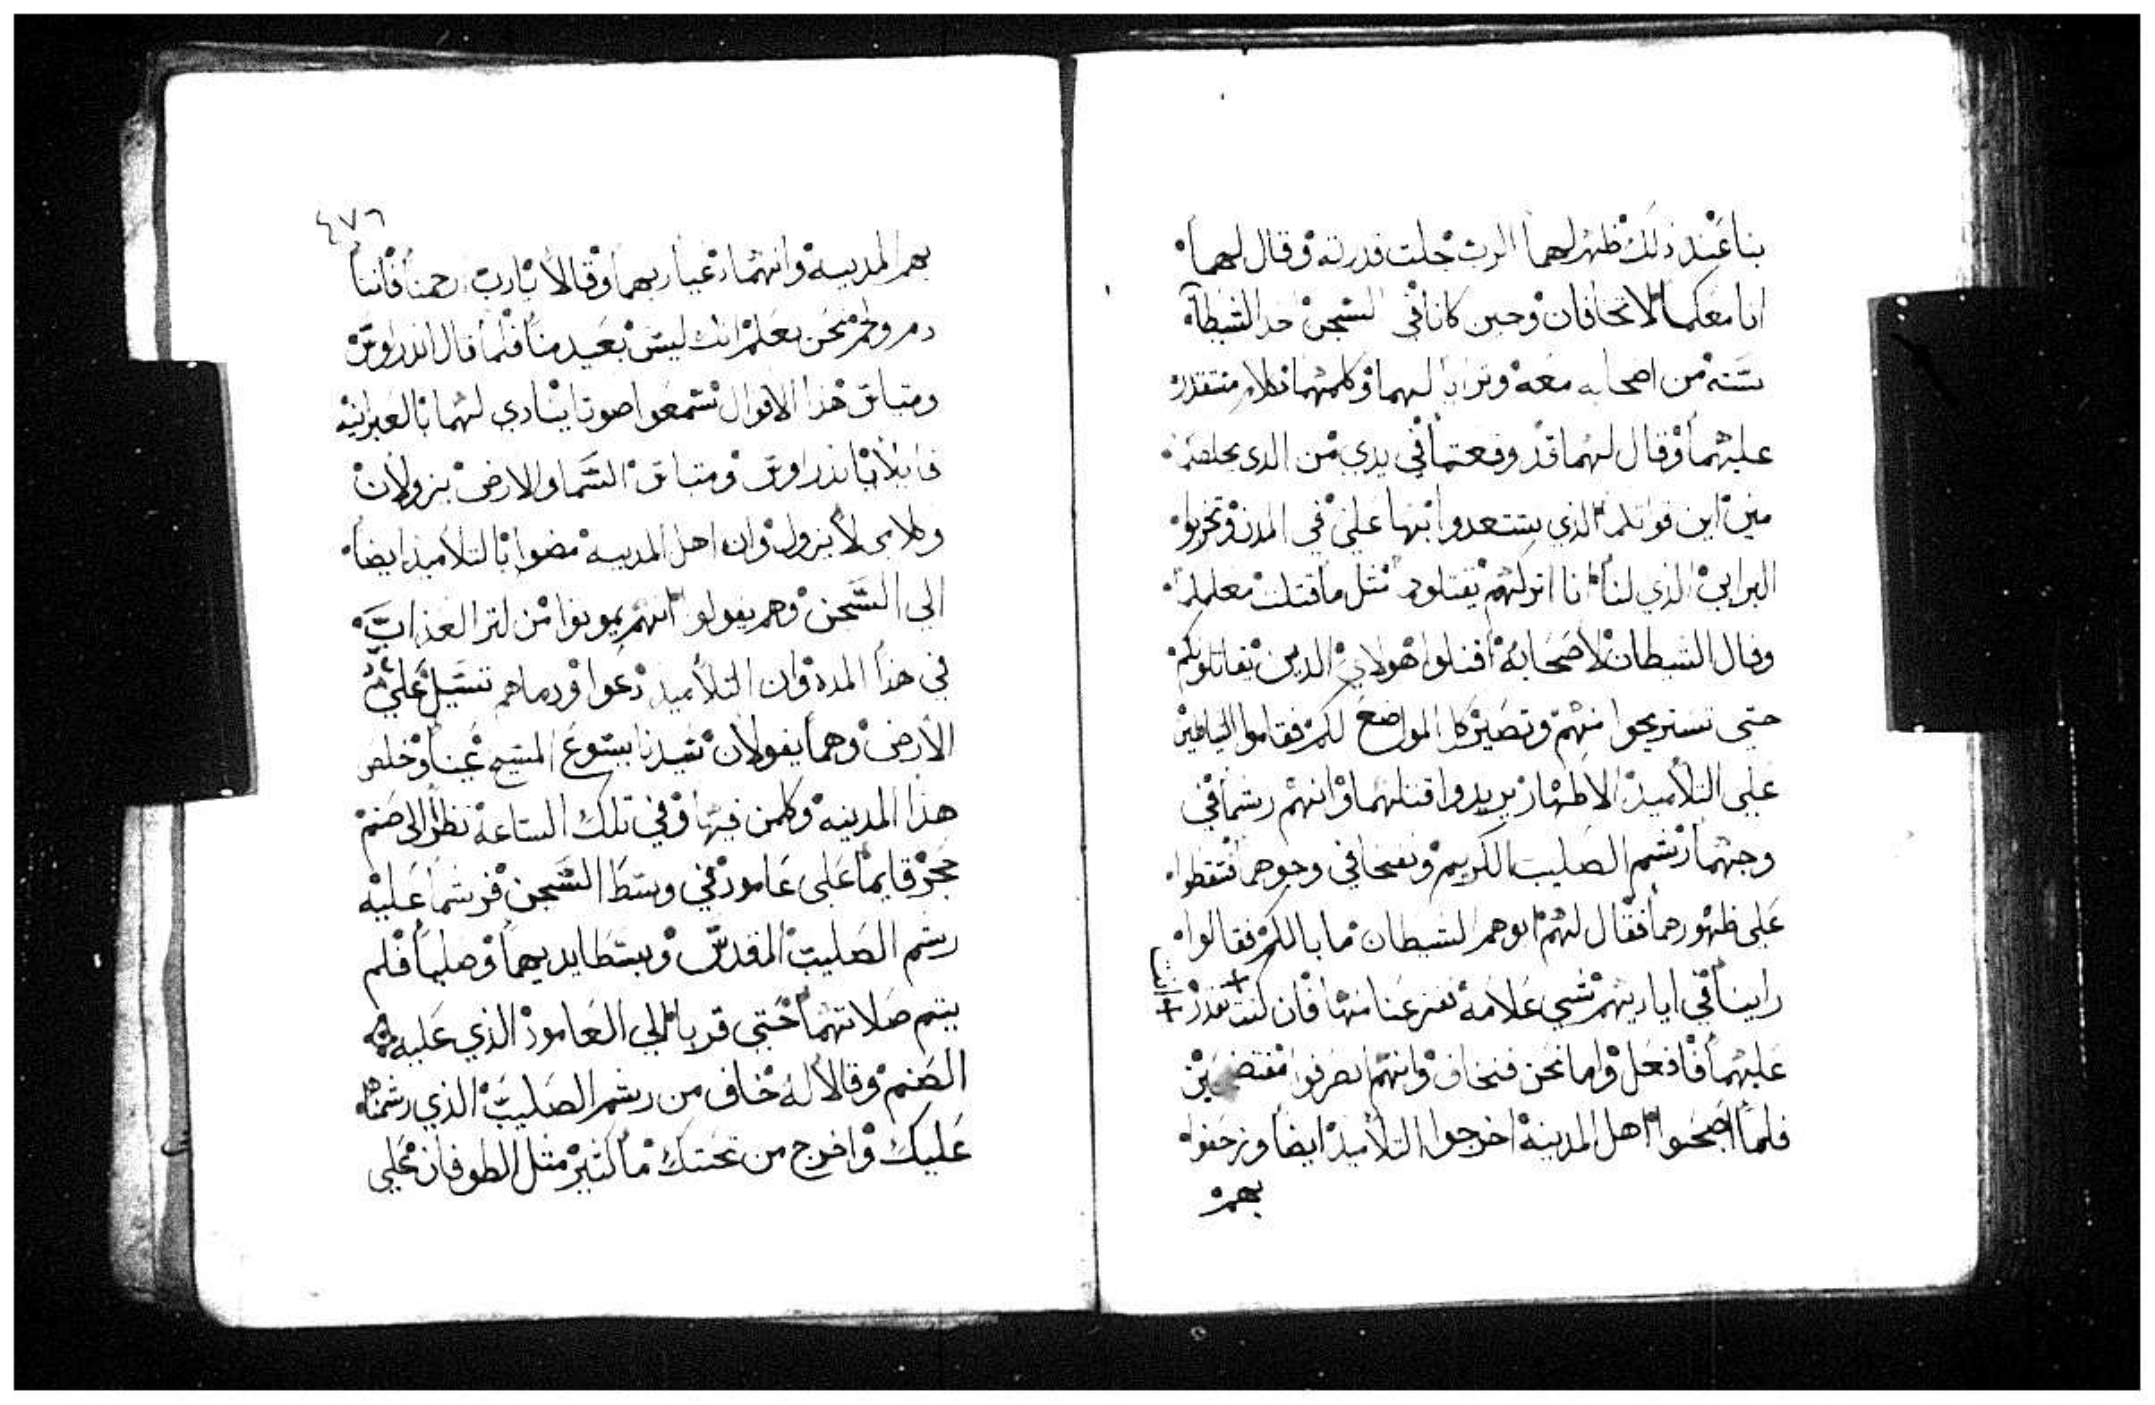 بنا عند ذلك ظهر لهما الرب جلت قدرته وقال لهما
انا معكما لا تخافان وحين كانا في السجن خد الشيطان
سته من اصحابه معه وترايا لهما وكلمهما بكلام منتقدر
عليهما وقال لهما قد وقعتما في يدي من الدي يخلصكم
مني اين قوتكما الذي تستعدوا بها علي في المدن وتخربوا
البرابي الذي لنا انا اتركهم يقتلوكم مثل ما قتلت معلمكم
وقال الشيطان لاصحابه اقتلوا هولاي الدين تقاتلوكم
حتي تستريحوا منهم وتصير كل المواضع لكم فقاموا الشياطين
علي التلاميد الاطهار يريدوا قتلهما وانهم رشما في
وجهما رشم الصليب الكريم ونفخا في وجوهما فسقطوا
علي ظهورهما فقال لهم ابوهم الشيطان ما بالكم فقالوا
راينا في اياديهم شي علامه نفزعنا منها فان كنت تقدر
عليهما فافعل واما نحن فنخاف وانهم انصرفوا مفتضحين
فلما اصحبوا اهل المدينه اخرجوا التلاميد ايضا وزحفوا
بهم
٤٧٦
بهم المدينه وانهما رغبا ربهما وقالا يارب ارحمنا فاننا
دم ولحم نحن نعلم انك ليس بعيد منا فلما قال اندراوس
ومتياس هذا الاقوال تسمعوا صوتا ينادي لهما بالعبرانيه
قايلا يا اندراوس ومتياس السما والارض يزولان
وكلامى لا يزول وان اهل المدينه مضوا بالتلاميد ايضا
الي السجن وهم يقولو انهم يموتوا من كتر العذاب
في هذا المده وان التلاميد دعوا ودماهم تسيل علي
الارض وهما يقولان سيدنا يسوع المسيح عينا وخلص
هذا المدينه وكلمن فيها وفي تلك الساعه نظرا الى صنم
حجر قايما علي عامود في وسط السجن فرشما عليه
رشم الصليب المقدس وبسطا ايديهما وصليا فلم
يتم صلاتهما حتي قربا الي العامود الذي عليه
الصنم وقالا له خاف من رشم الصليب الذي رشمناه
عليك واخرج من تحتك ما كتير مثل الطوفان علي